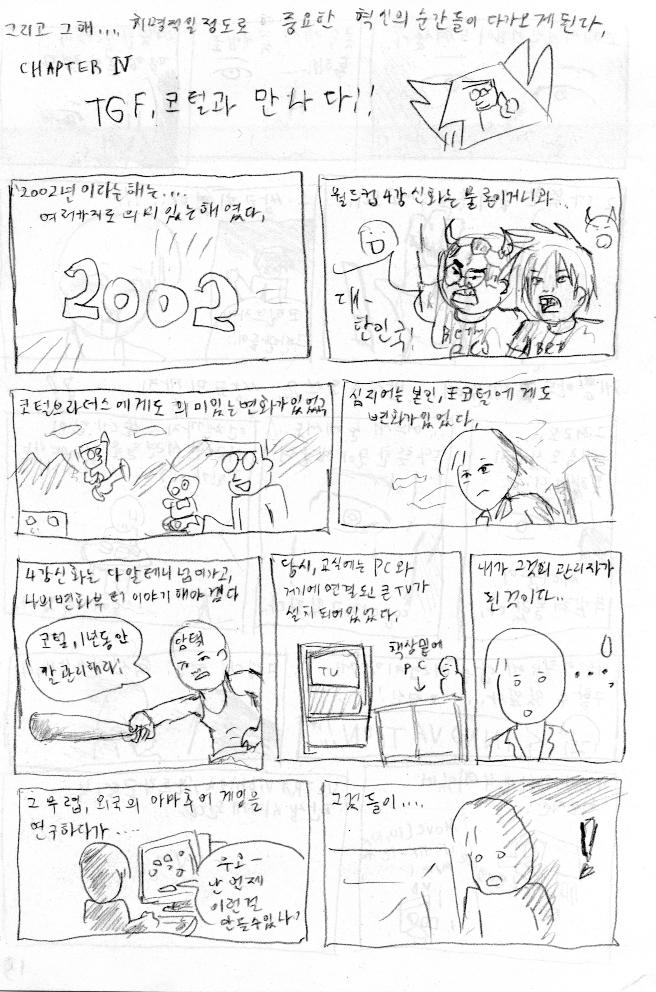 그리고 그해.... 치명적일정도로 중요한 혁신의 순간들이 다가오게된다.
CHAPTER Ⅳ
TGF, 코털과 만나다!!
2002년 이라는해는....
여러가지로 의미있는해였다.
2002
월드컵 4강신화는 물론이거니와...
대~
한민국!
코털브라더스에게도 의미있는변화가있었고
심지어는 본인, 코털에게도
변화가있었다.
4강신화는 다 알테니 넘어가고,
나의변화부터 이야기해야겠다
코털, 1년동안
잘관리해라!
담탱
당시, 교실에는 PC와
거기에 연결된 큰 TV가
설치되어있었다.
TV
책상밑에
PC
↓
내가 그것의 관리자가
된것이다..
...!
그 무렵, 외국의 아마추어 게임을
연구하다가....
우오~
난 언제
이런걸
만들수있나?
그것들이....
!!